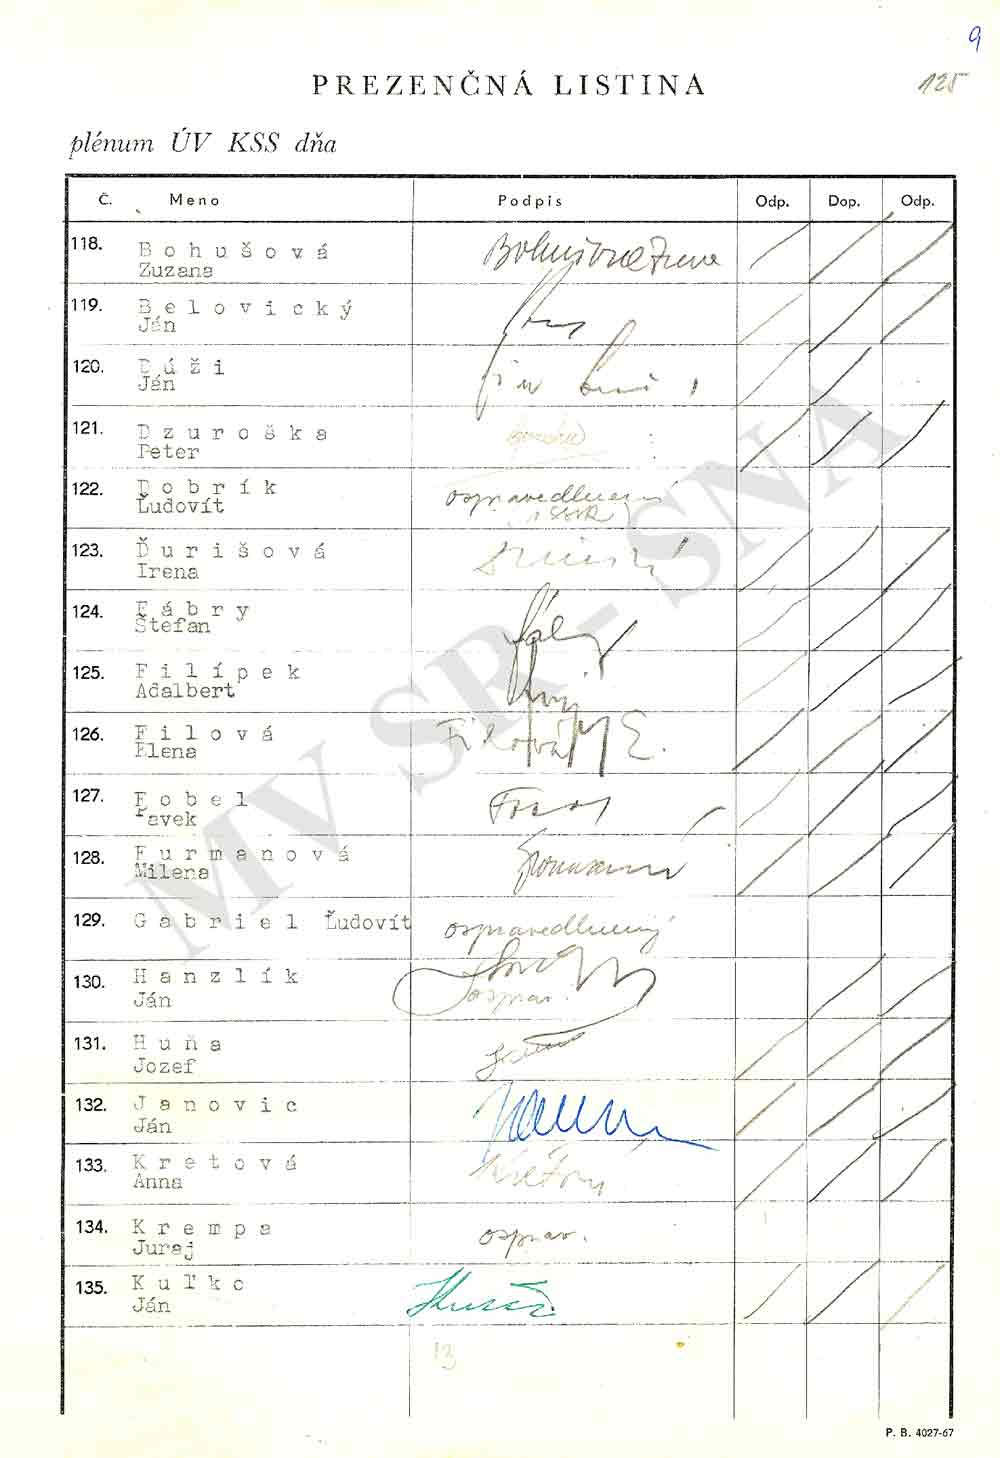 9
125
PREZENČNÁ LISTINA
plénum ÚV KSS dňa
Č. Meno Podpis Odp. Dop. Odp.
118. Bohušová
Zuzana
119. Belovický
Ján
120. Dúži
Ján
121. Dzuroška
Peter
122. Dobrík ospravedlnený
Ľudovít
123. Ďurišová
Irena
124. Fábry
Štefan
125. Filípek
Adalbert
126. Filová Filová E.
Elena
127. Fobel
Pavek
128. Furmanová
Milena
129. Gabriel Ľudovít ospravedlnený
130. Hanzlík
Ján osprav.
131. Huňa
Jozef
132. Janovic
Ján
133. Kretová Kretová
Anna
134. Krempa osprav.
Juraj
135. Kuľko
Ján
13
MV SR - SNA
P. B. 4027-67